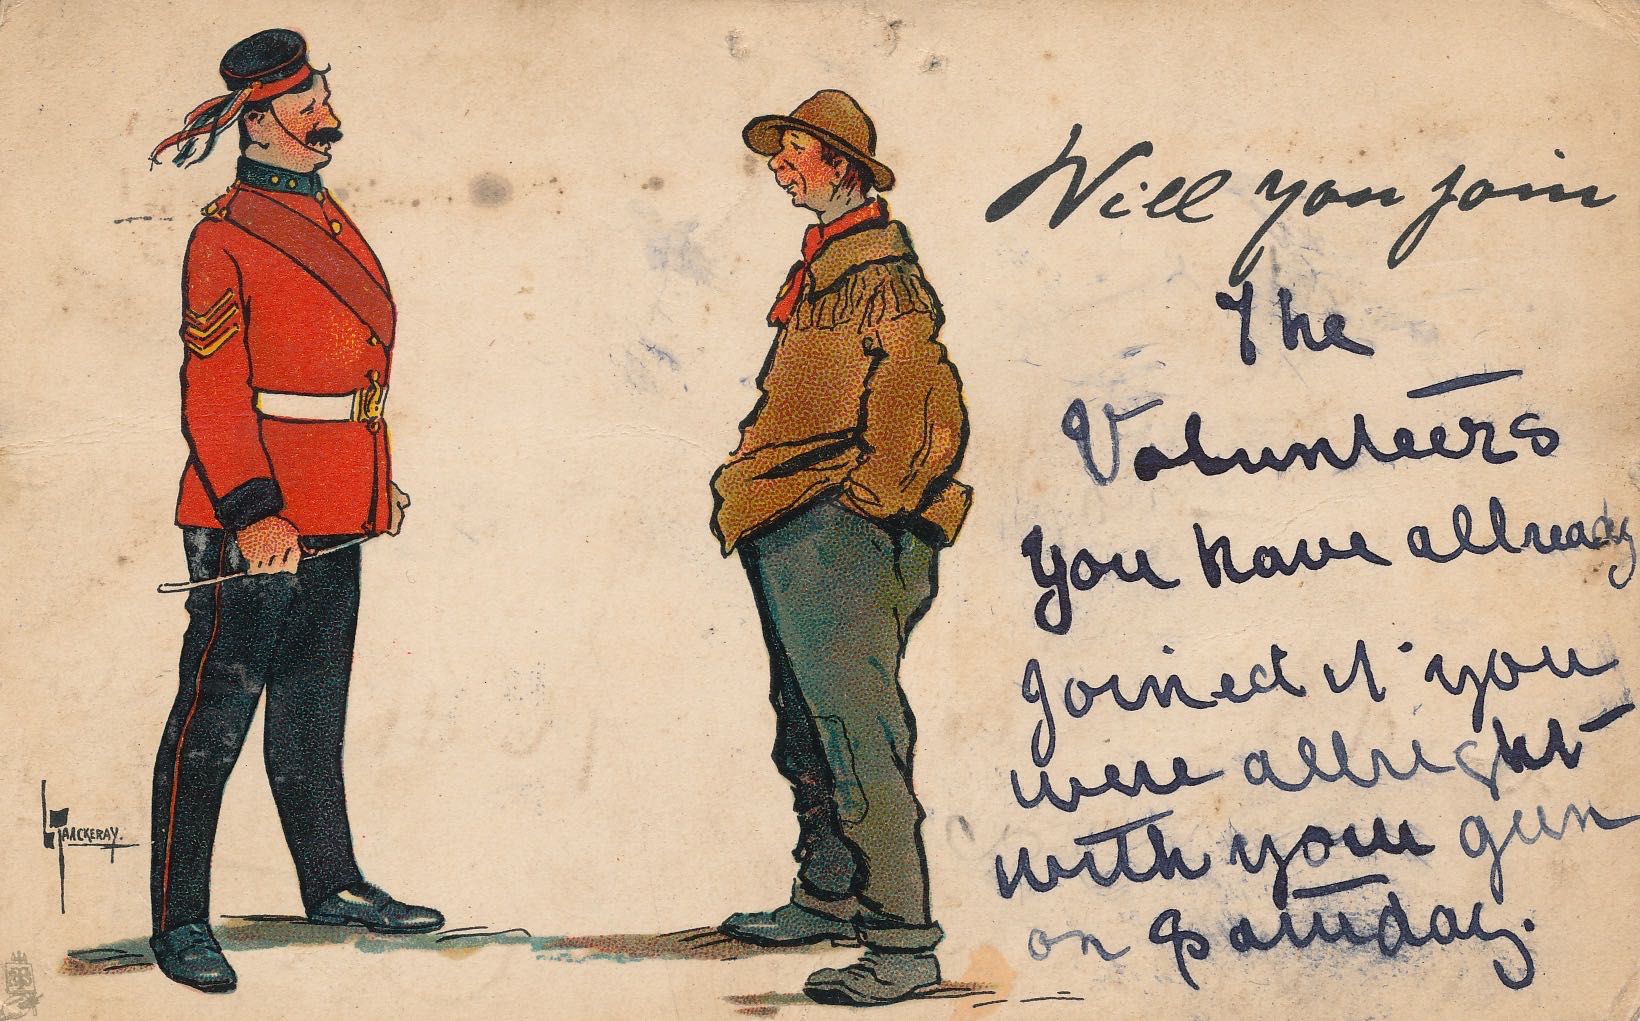 Will you join
The
Volunteers
you have allready
joined it you
were allright
with your gun
on Saturday.
THACKERAY.